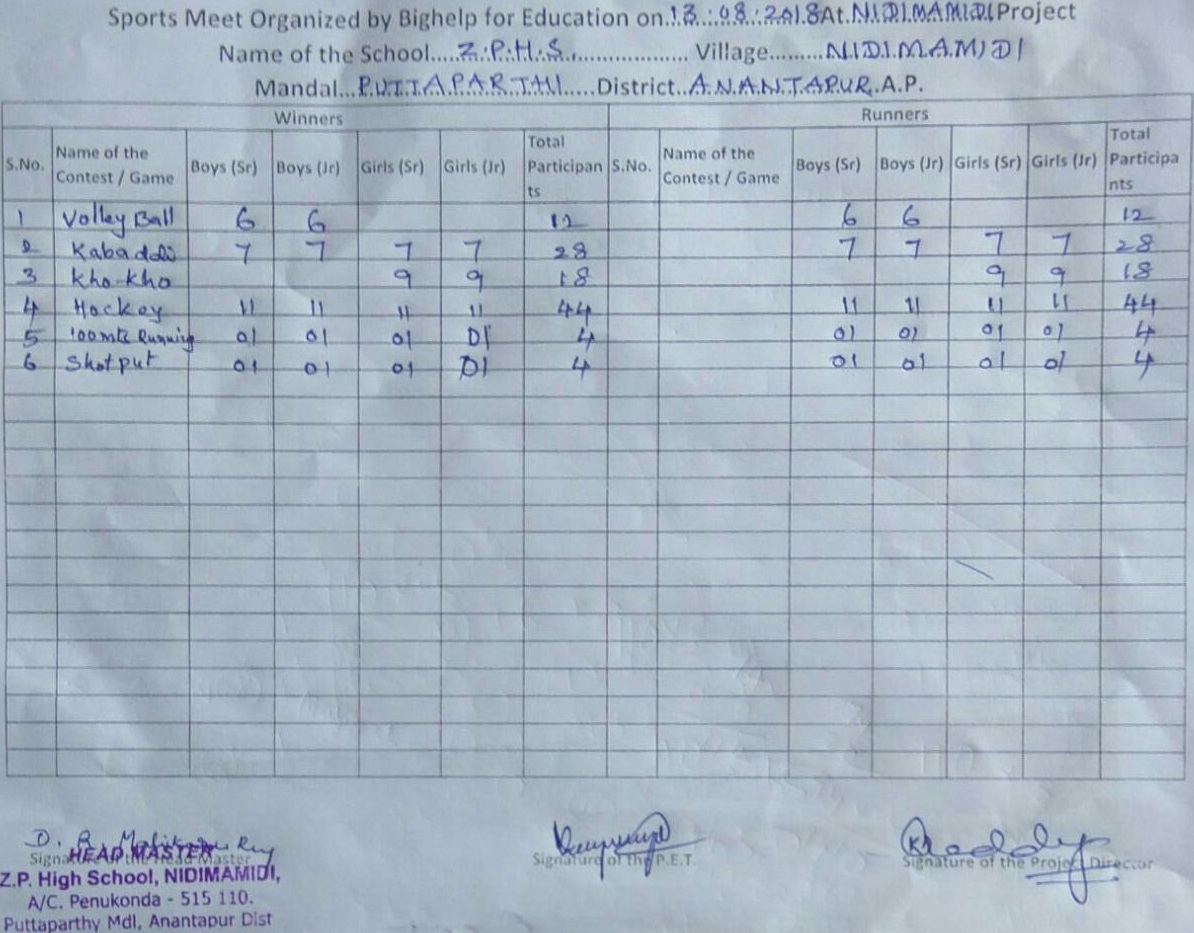 Sports Meet Organized by Bighelp for Education on.13.:08.:2018At.NIDIMAMIDIProject
Name of the School....Z.P.H.S.................... Village.........NIDIMAMIDI
Mandal...PUTTAPARTHI.....District..ANANTAPUR.A.P.
Winners Runners
S.No. Name of the Contest / Game Boys (Sr) Boys (Jr) Girls (Sr) Girls (Jr) Total Participan ts S.No. Name of the Contest / Game Boys (Sr) Boys (Jr) Girls (Sr) Girls (Jr) Total Participa nts
1 Volley Ball 6 6 12 6 6 12
2 Kabaddi 7 7 7 7 28 7 7 7 7 28
3 Kho-Kho 9 9 18 9 9 18
4 Hockey 11 11 11 11 44 11 11 11 11 44
5 100mts Running 01 01 01 01 4 01 01 01 01 4
6 Shot put 01 01 01 01 4 01 01 01 01 4
Signature of the Head Master Signature of the P.E.T. Signature of the Project Director
HEAD MASTER
Z.P. High School, NIDIMAMIDI,
A/C. Penukonda - 515 110.
Puttaparthy Mdl, Anantapur Dist